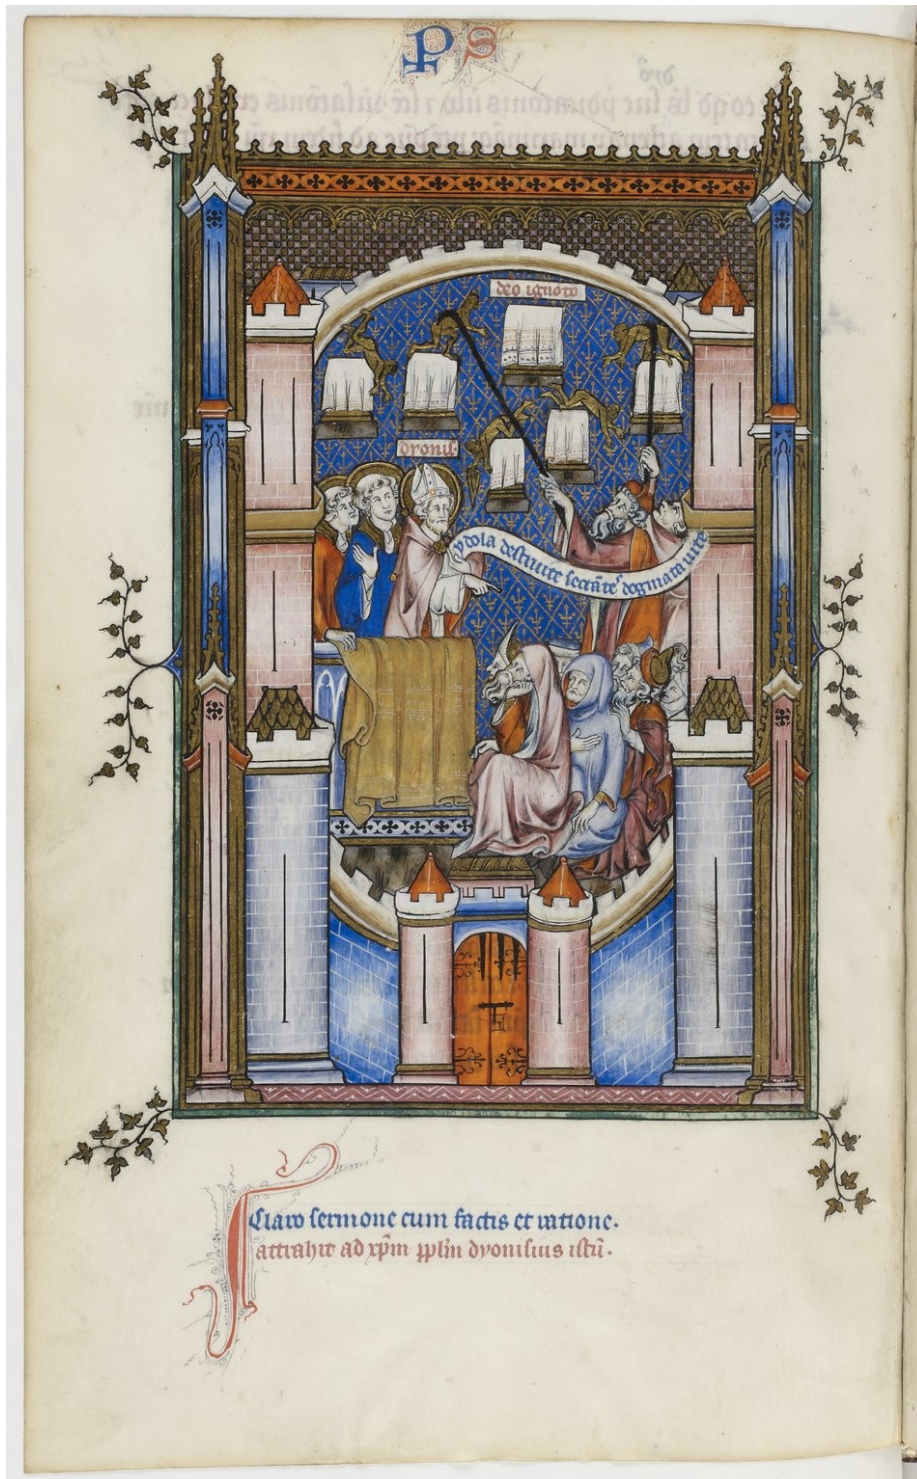 PS
deo ignoto
dyonis.
ydola destruite sectāte dogmata vite
Claro sermone cum factis et ratione.
attrahit ad xp̄m pplm̄ dyonisius istū.